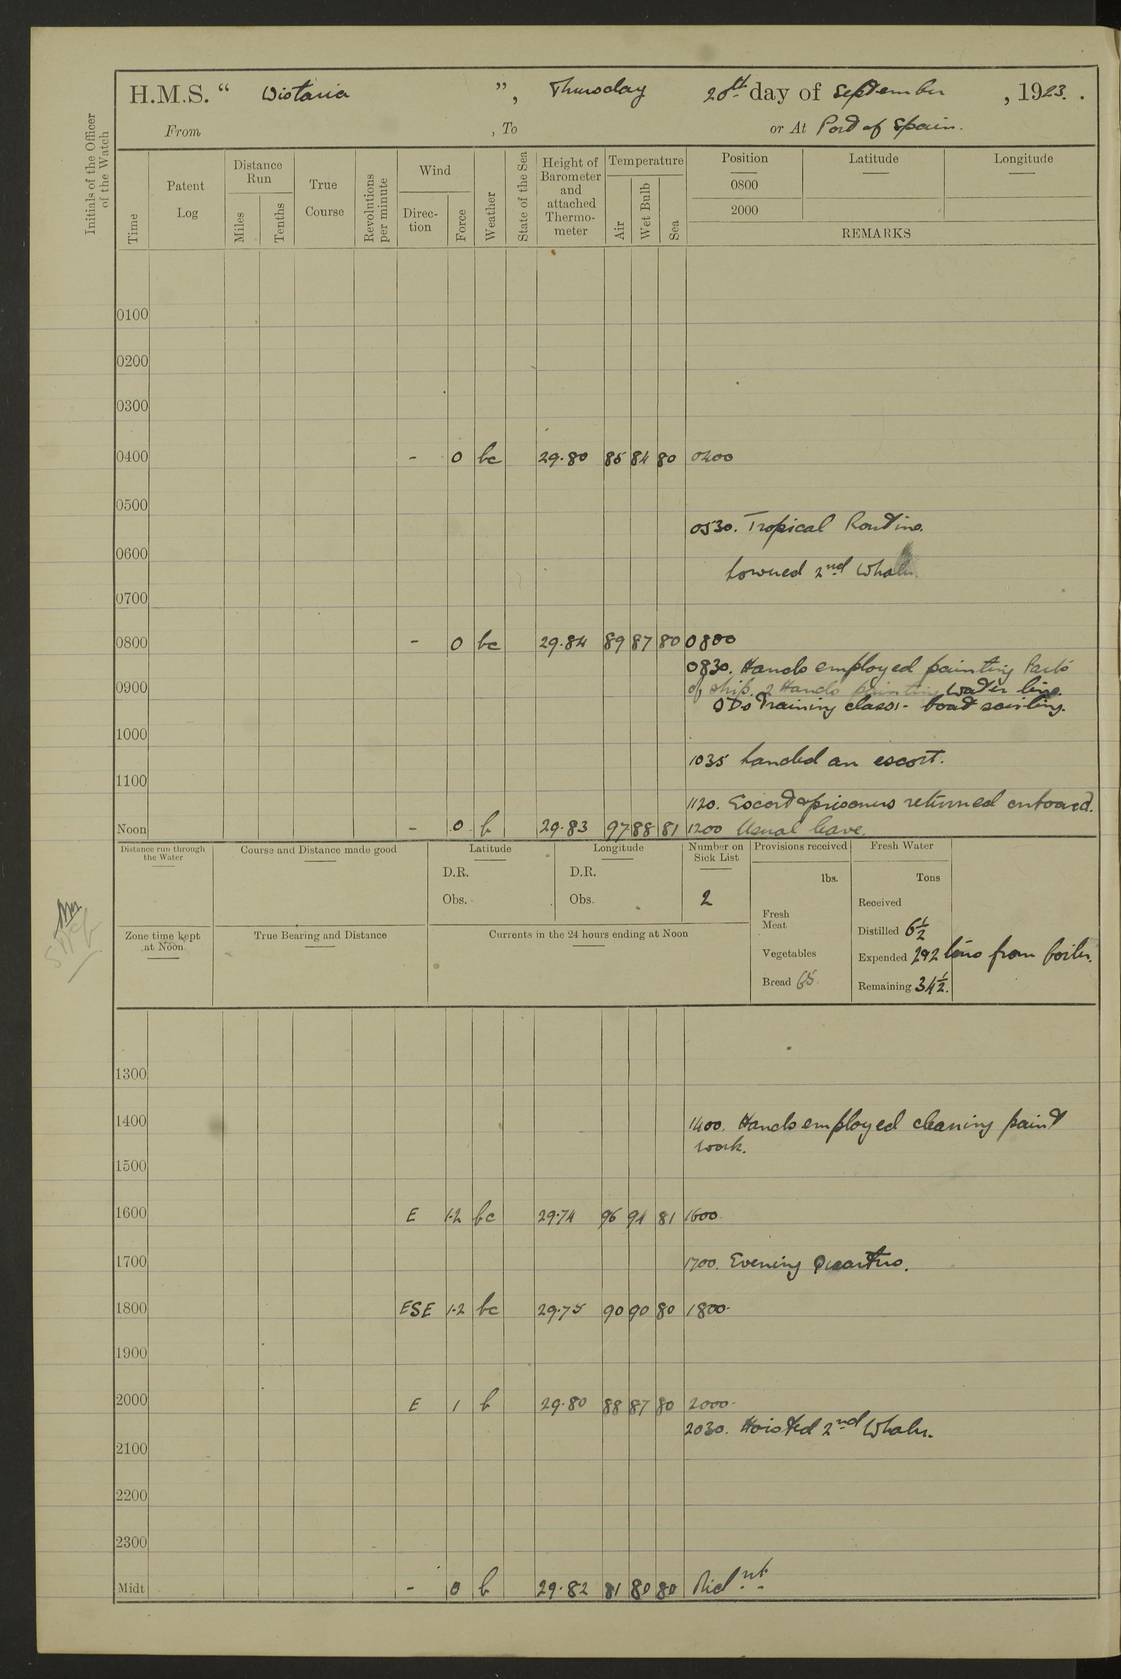 H.M.S. “ Wistaria ”, Thursday 20th day of September, 1923.
From , To or At Port of Spain.
Initials of the Officer of the Watch
Time
Patent Log
Distance Run
Miles
Tenths
True Course
Revolutions per minute
Wind
Direction
Force
Weather
State of the Sea
Height of Barometer and attached Thermometer
Temperature
Air
Wet Bulb
Sea
Position Latitude Longitude
0800
2000
REMARKS
0100
0200
0300
0400 - 0 bc 29.80 85 84 80 0400
0500
0530. Tropical Routine.
0600
Lowered 2nd Whaler.
0700
0800 - 0 bc 29.84 89 87 80 0800
0830. Hands employed painting Parts
0900 of ship. 2 Hands painting water line.
ODs Training class:- boat sailing.
1000
1035 Landed an escort.
1100
1120. Escort & prisoners returned onboard.
Noon - 0 b 29.83 97 88 81 1200 Usual leave.
Distance run through the Water
Course and Distance made good
Latitude
D.R.
Obs.
Longitude
D.R.
Obs.
Number on Sick List
2
Provisions received
lbs.
Fresh Meat
Vegetables
Bread 65
Fresh Water
Tons
Received
Distilled 6½
Expended 292 tons from boiler.
Remaining 34½.
Zone time kept at Noon
True Bearing and Distance
Currents in the 24 hours ending at Noon
1300
1400 1400. Hands employed cleaning paint
work.
1500
1600 E 1-2 bc 29.74 96 94 81 1600
1700 1700. Evening Quarters.
1800 ESE 1-2 bc 29.75 90 90 80 1800
1900
2000 E 1 b 29.80 88 87 80 2000
2030. Hoisted 2nd Whaler.
2100
2200
2300
Midt - 0 b 29.82 81 80 80 Midnt